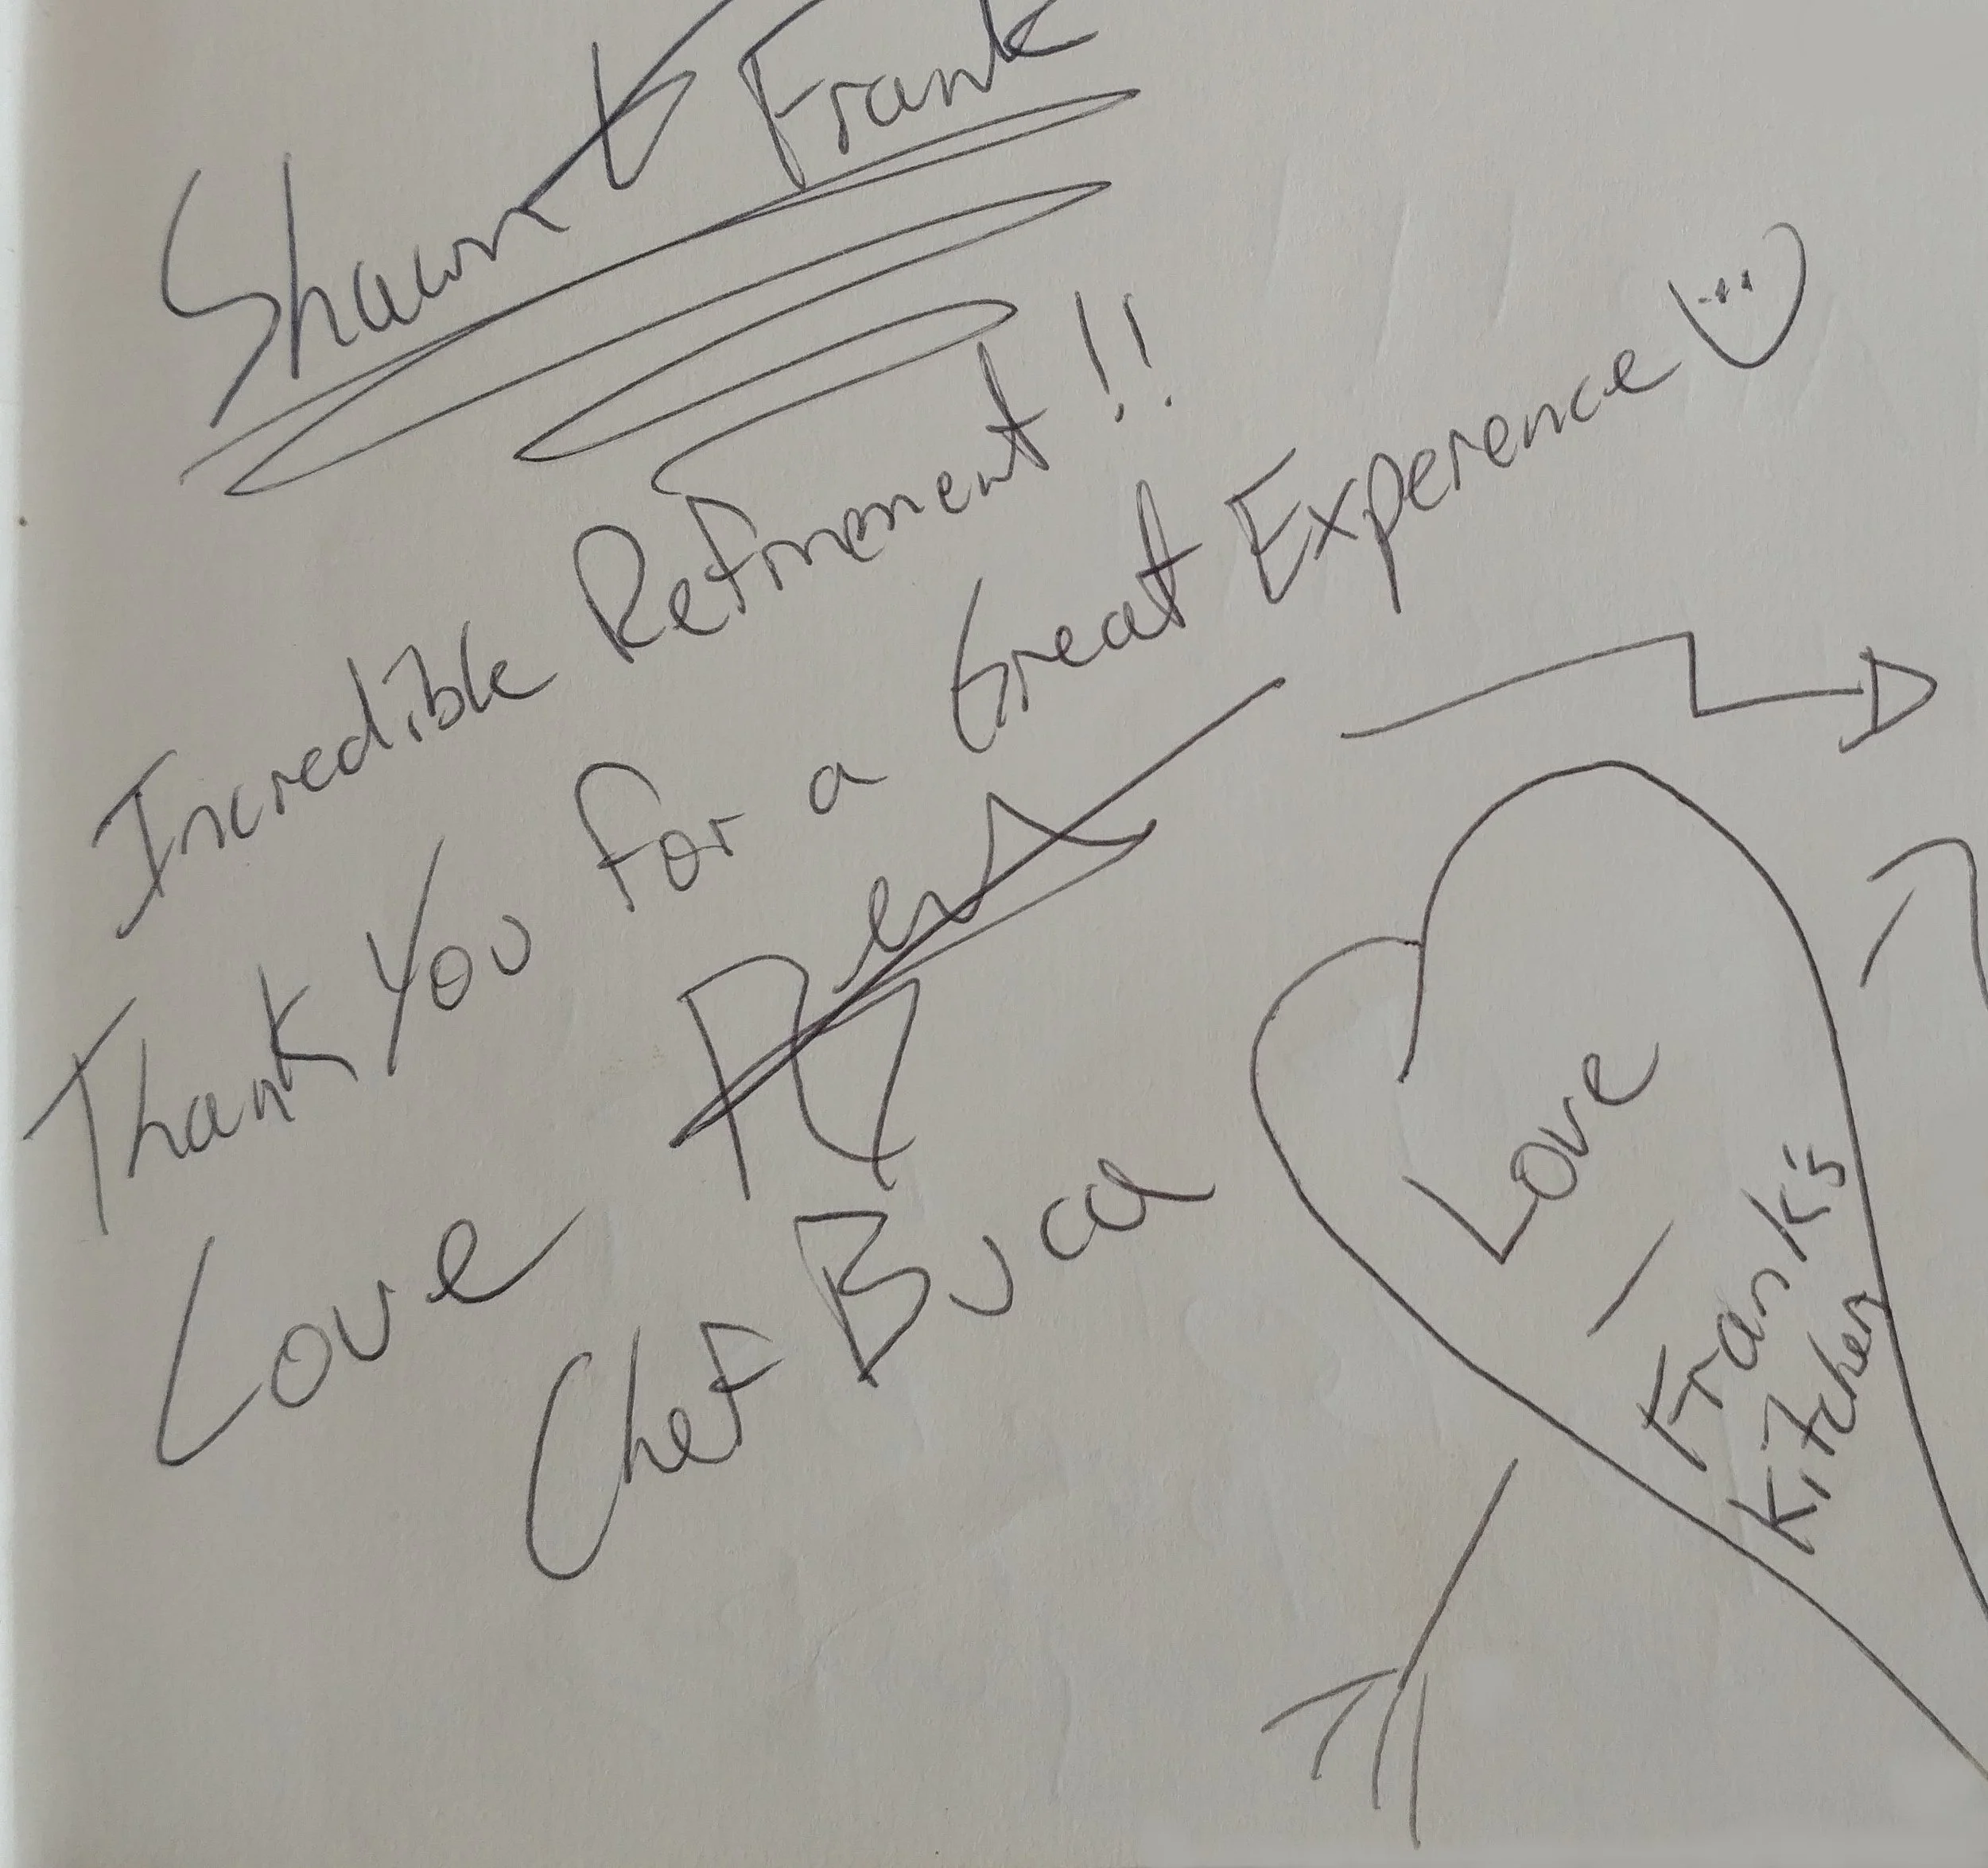 Shawn & Frank
Incredible Refinement!!
Thank You For a Great Experence
Love
Chef
Love
Frank's
Kitchen